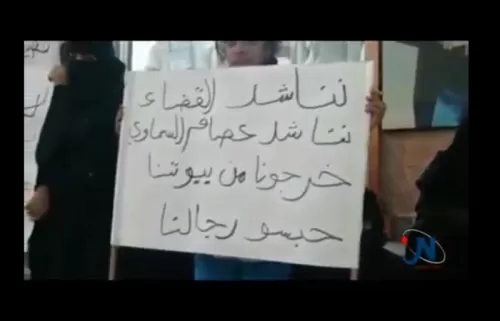 نناشد القضاء
نناشد عصام السماوي
خرجونا من بيوتنا
حبسو رجالنا